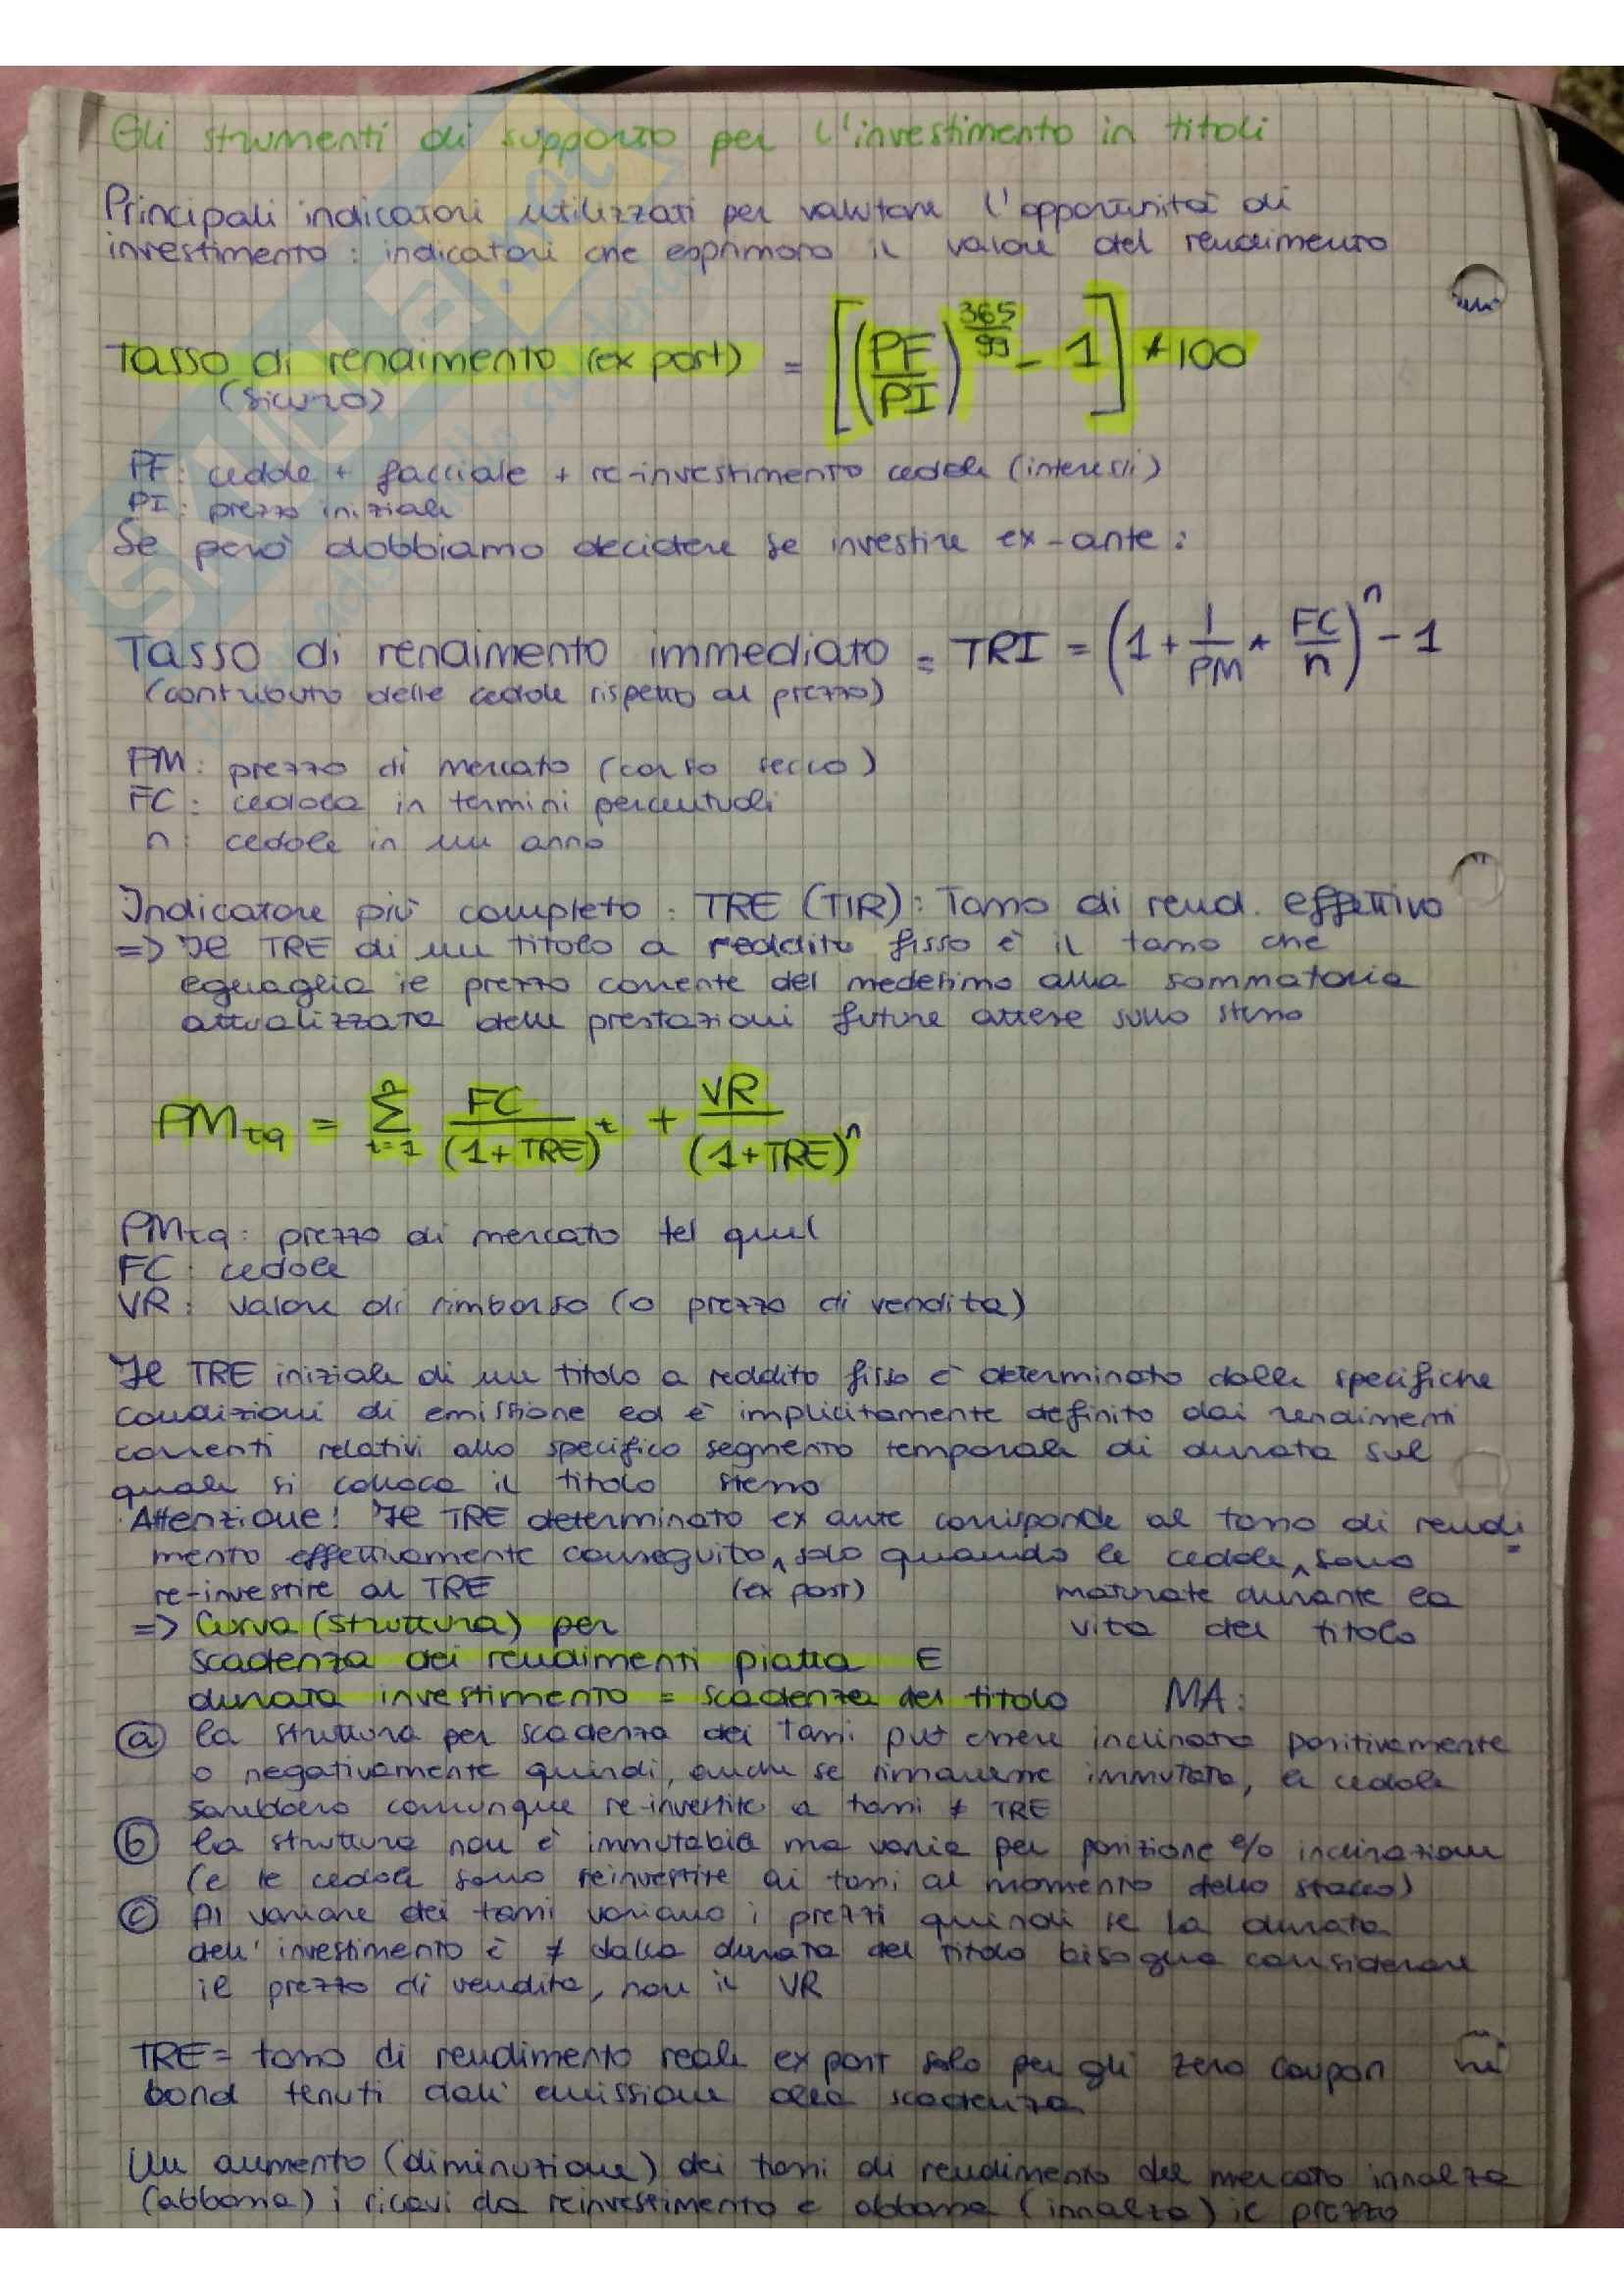 Gli strumenti di supporto per l'investimento in titoli
Principali indicatori utilizzati per valutare l'opportunità di
investimento : indicatori che esprimono il valore del rendimento
Tasso di rendimento (ex post) = [(PF/PI)^(365/gg) - 1] * 100
(sicuro)
PF: cedole + facciale + re-investimento cedole (interessi)
PI: prezzo iniziale
Se però dobbiamo decidere se investire ex-ante:
Tasso di rendimento immediato = TRI = (1 + 1/PM * FC/n)^n - 1
(contributo delle cedole rispetto al prezzo)
PM: prezzo di mercato (corso secco)
FC: cedola in termini percentuali
n: cedole in un anno
Indicatore più completo: TRE (TIR): Tasso di rend. effettivo
=> Il TRE di un titolo a reddito fisso è il tasso che
eguaglia il prezzo corrente del medesimo alla sommatoria
attualizzata delle prestazioni future attese sullo stesso
PMtq = Σ t=1 n FC/(1+TRE)^t + VR/(1+TRE)^n
PMtq: prezzo di mercato tel quel
FC: cedole
VR: valore di rimborso (o prezzo di vendita)
Il TRE iniziale di un titolo a reddito fisso è determinato dalle specifiche
condizioni di emissione ed è implicitamente definito dai rendimenti
correnti relativi allo specifico segmento temporale di durata sul
quale si colloca il titolo stesso
Attenzione! Il TRE determinato ex ante corrisponde al tasso di rendi
mento effettivamente conseguito, solo quando le cedole sono
re-investite al TRE (ex post) maturate durante la
=> Curva (struttura) per vita del titolo
scadenza dei rendimenti piatta E
durata investimento = scadenza del titolo MA:
a la struttura per scadenza dei tassi può essere inclinata positivamente
o negativamente quindi, anche se rimanesse immutata, le cedole
sarebbero comunque re-investite a tassi ≠ TRE
b la struttura non è immutabile ma varia per posizione e/o inclinazione
(e le cedole sono reinvestite ai tassi al momento dello stacco)
c Al variare dei tassi variano i prezzi quindi se la durata
dell'investimento è ≠ dalla durata del titolo bisogna considerare
il prezzo di vendita, non il VR
TRE = tasso di rendimento reale ex post solo per gli zero coupon
bond tenuti dall'emissione alla scadenza
Un aumento (diminuzione) dei tassi di rendimento del mercato innalza
(abbassa) i ricavi da reinvestimento e abbassa (innalza) il prezzo